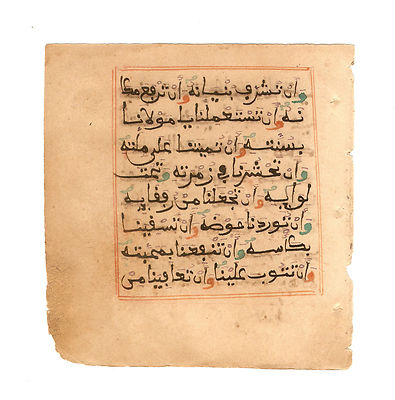 وَأَنْ تُشَرِّفَ بُنْيَانَهُ وَأَنْ تَرْفَعَ مَكَا
نَهُ وَأَنْ تَسْتَعْمِلَنَا يَا مَوْلَانَا
بِسُنَّتِهِ وَأَنْ تُمِيتَنَا عَلَى مِلَّتِهِ
وَأَنْ تَحْشُرَنَا فِي زُمْرَتِهِ وَتَحْتَ
لِوَايِهِ وَأَنْ تَجْعَلَنَا مِنْ رُفَقَايِهِ
وَأَنْ تُورِدَنَا حَوْضَهُ وَأَنْ تَسْقِيَنَا
بِكَأْسِهِ وَأَنْ تَنْفَعَنَا بِمَحَبَّتِهِ
وَأَنْ تَتُوبَ عَلَيْنَا وَأَنْ تُعَافِيَنَا مِنْ